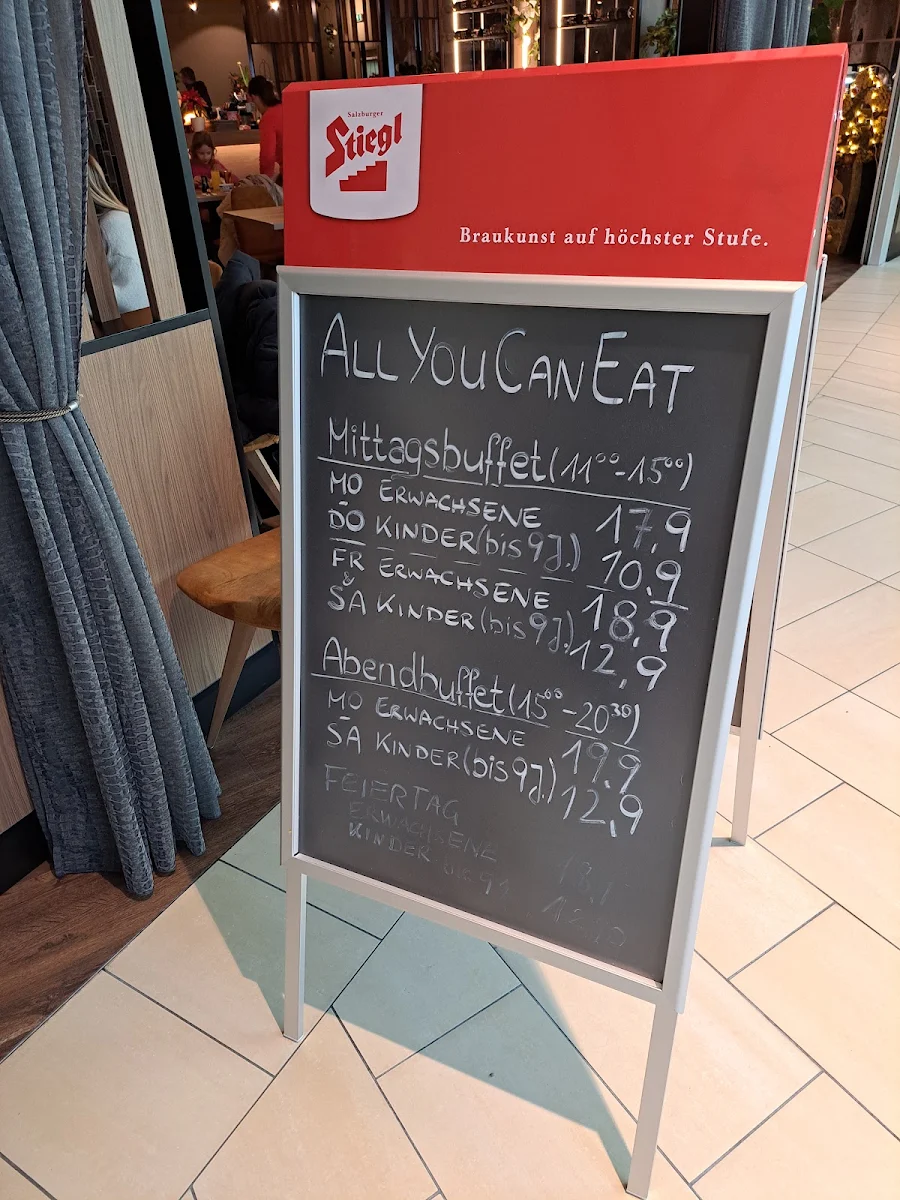 Salzburger
Stiegl
Braukunst auf höchster Stufe.
ALL YOU CAN EAT
Mittagsbuffet (11⁰⁰-15⁰⁰)
MO ERWACHSENE 17,9
-
DO KINDER (bis 9 J.) 10,9
FR ERWACHSENE 18,9
&
SA KINDER (bis 9 J.) 12,9
Abendbuffet (15⁰⁰-20³⁰)
MO ERWACHSENE 19,9
-
SA KINDER (bis 9 J.) 12,9
FEIERTAG
ERWACHSENE
KINDER bis 9